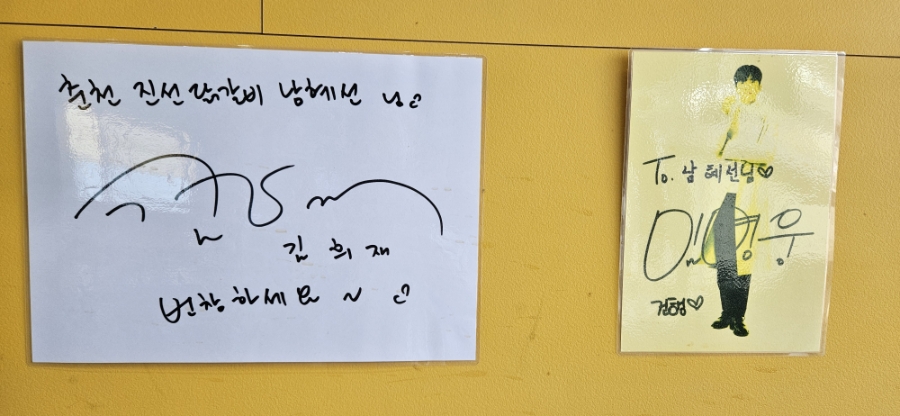 춘천 진선닭갈비 남혜선 님
김희재
번창하세요~
To. 남혜선님♡
임영웅
건행♡